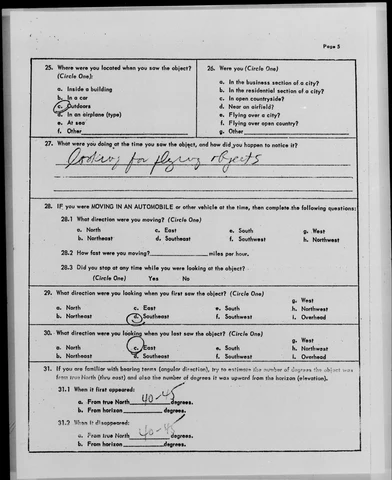 Page 5
25. Where were you located when you saw the object?
(Circle One):
a. Inside a building
b. In a car
c. Outdoors
d. In an airplane (type)
e. At sea
f. Other
26. Were you (Circle One)
a. In the business section of a city?
b. In the residential section of a city?
c. In open countryside?
d. Near an airfield?
e. Flying over a city?
f. Flying over open country?
g. Other
27. What were you doing at the time you saw the object, and how did you happen to notice it?
looking for flying objects
28. IF you were MOVING IN AN AUTOMOBILE or other vehicle at the time, then complete the following questions:
28.1 What direction were you moving? (Circle One)
a. North c. East e. South g. West
b. Northeast d. Southeast f. Southwest h. Northwest
28.2 How fast were you moving? miles per hour.
28.3 Did you stop at any time while you were looking at the object?
(Circle One) Yes No
29. What direction were you looking when you first saw the object? (Circle One)
a. North c. East e. South g. West
b. Northeast d. Southeast f. Southwest h. Northwest
i. Overhead
30. What direction were you looking when you last saw the object? (Circle One)
a. North c. East e. South g. West
b. Northeast d. Southeast f. Southwest h. Northwest
i. Overhead
31. If you are familiar with bearing terms (angular direction), try to estimate the number of degrees the object was
from true North (thru east) and also the number of degrees it was upward from the horizon (elevation).
31.1 When it first appeared:
a. From true North 40-45 degrees.
b. From horizon degrees.
31.2 When it disappeared:
a. From true North 40-45 degrees.
b. From horizon degrees.